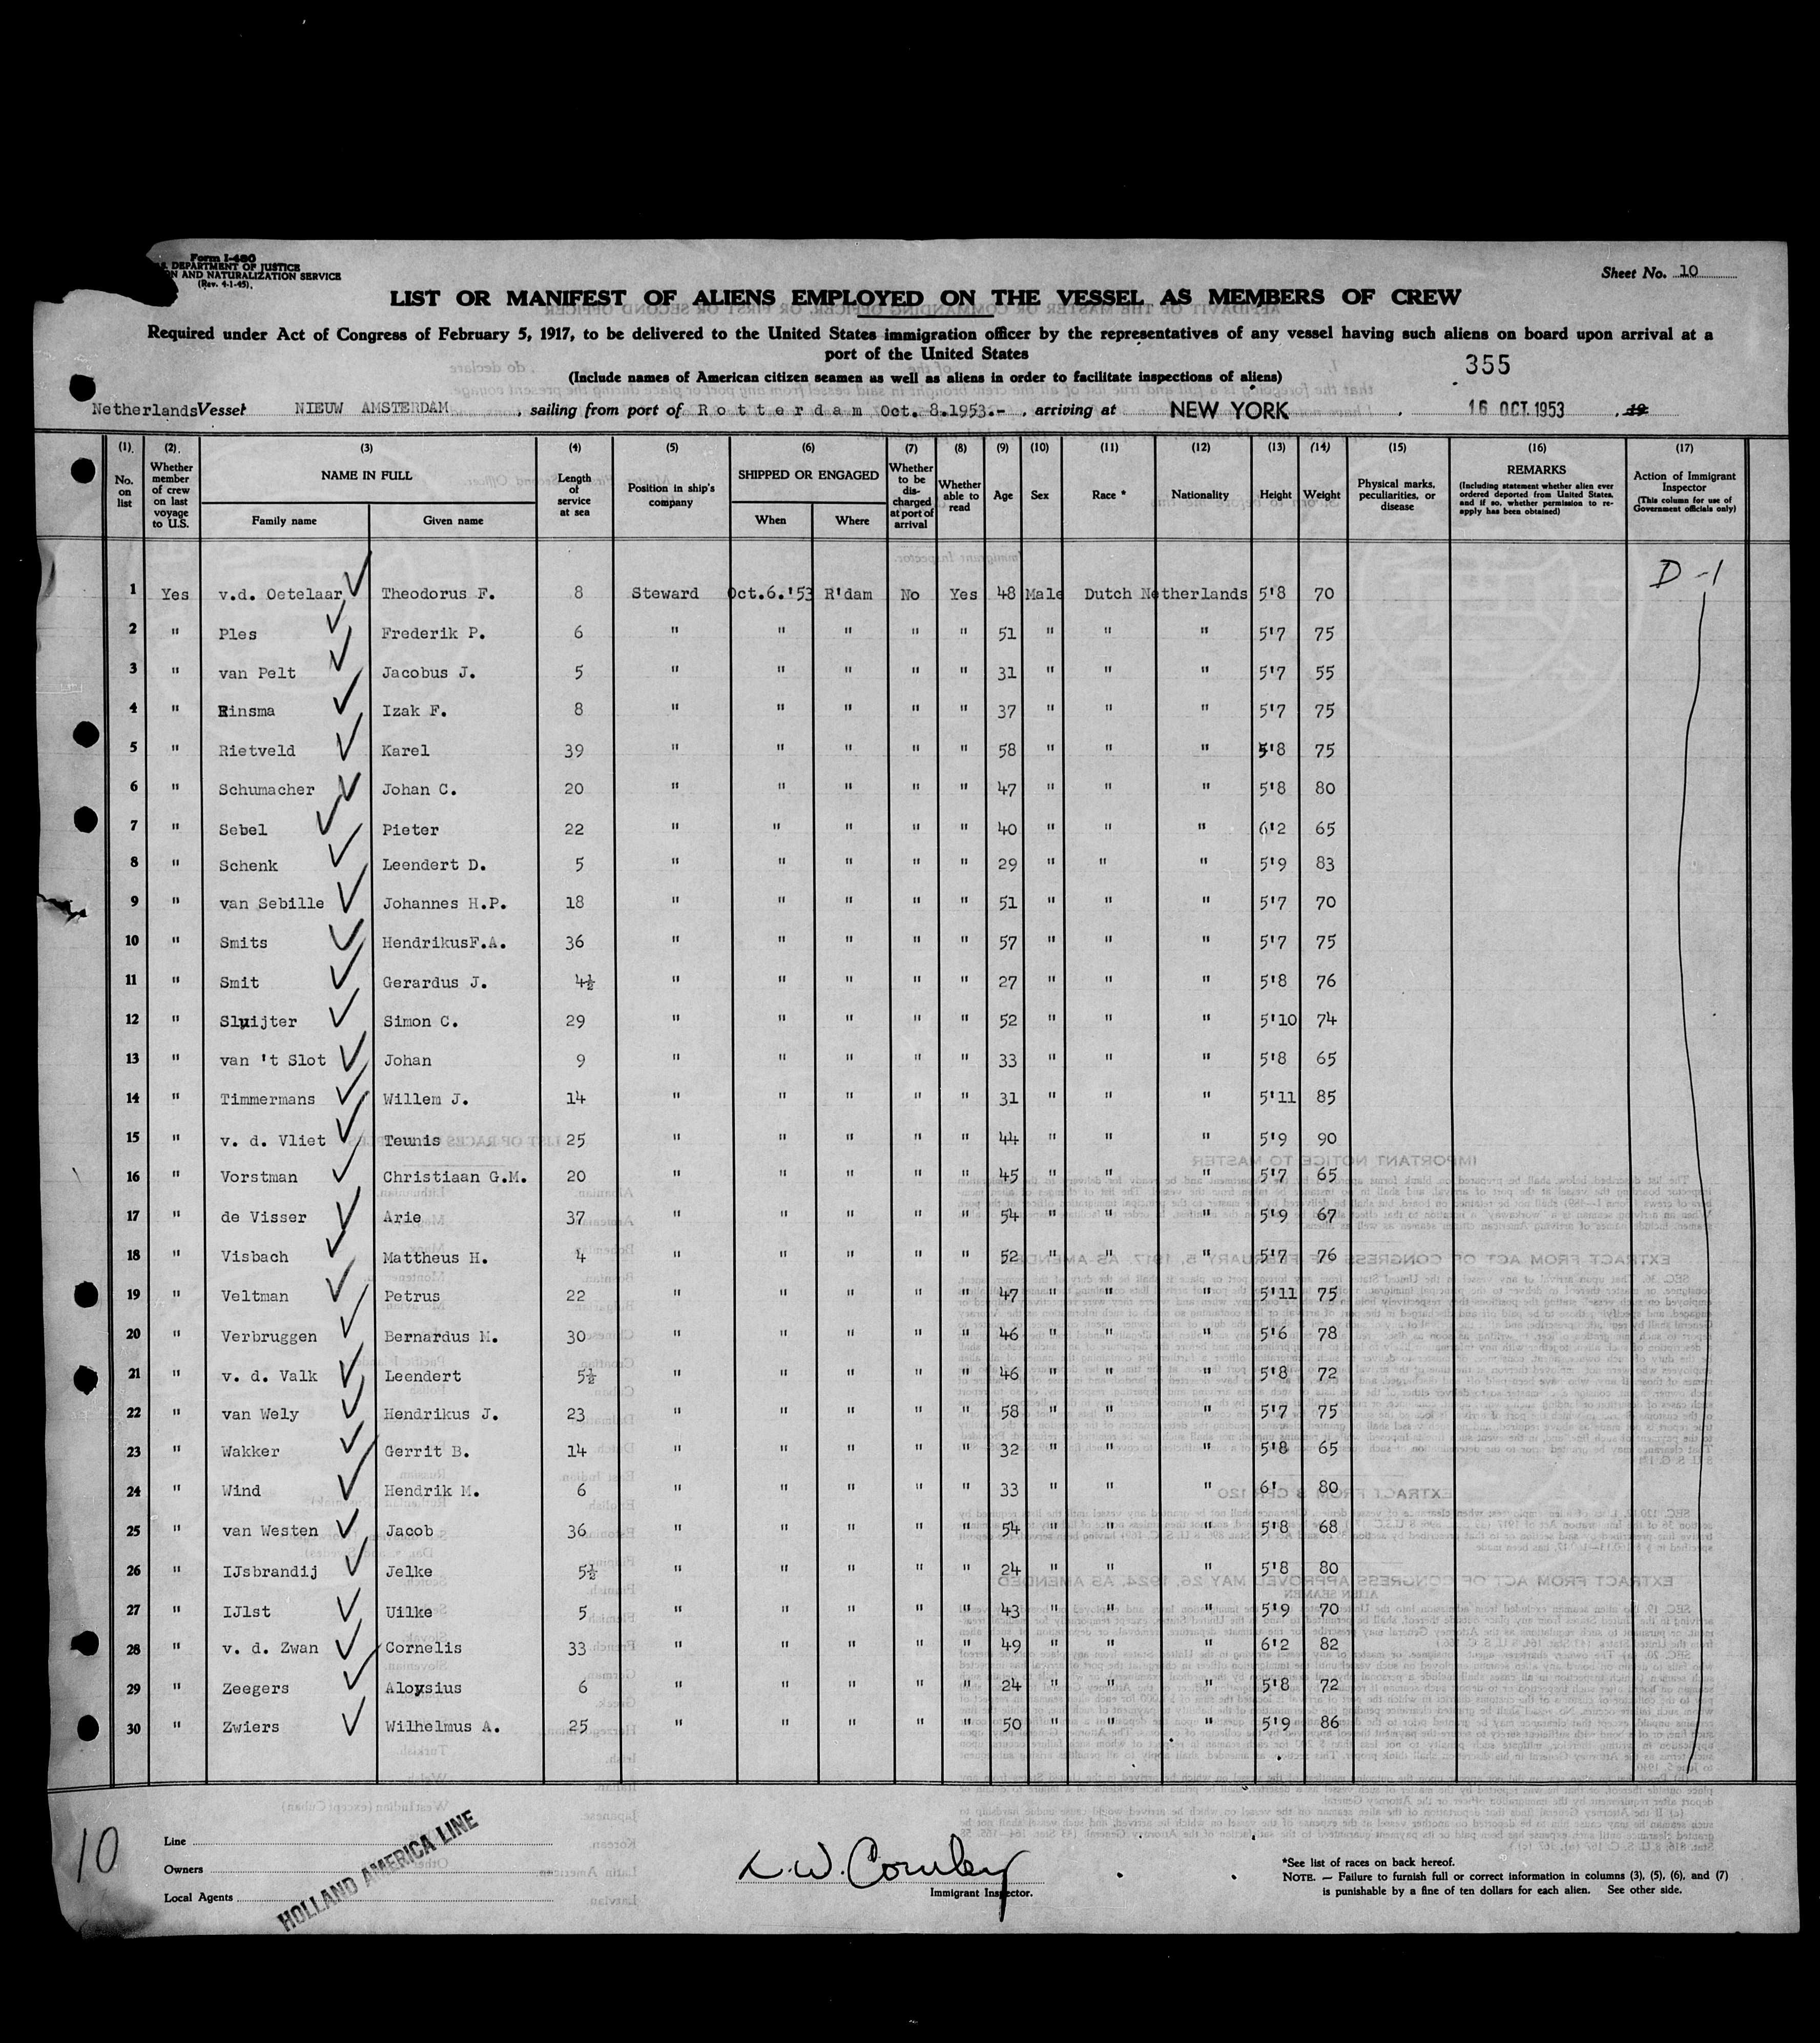 Form I-480
DEPARTMENT OF JUSTICE
AND NATURALIZATION SERVICE
(Rev. 4-1-45)
Sheet No. 10
LIST OR MANIFEST OF ALIENS EMPLOYED ON THE VESSEL AS MEMBERS OF CREW
Required under Act of Congress of February 5, 1917, to be delivered to the United States immigration officer by the representatives of any vessel having such aliens on board upon arrival at a
port of the United States
355
(Include names of American citizen seamen as well as aliens in order to facilitate inspections of aliens)
Netherlands Vessel NIEUW AMSTERDAM, sailing from port of Rotterdam Oct. 8.1953.-, arriving at NEW YORK, 16 OCT. 1953, 19
(1) (2) (3) (4) (5) (6) (7) (8) (9) (10) (11) (12) (13) (14) (15) (16) (17)
No. on list | Whether member of crew on last voyage to U.S. | NAME IN FULL Family name Given name | Length of service at sea | Position in ship's company | SHIPPED OR ENGAGED When Where | Whether to be discharged at port of arrival | Whether able to read | Age | Sex | Race * | Nationality | Height | Weight | Physical marks, peculiarities, or disease | REMARKS (Including statement whether alien ever ordered deported from United States, and if so, whether permission to re-apply has been obtained) | Action of Immigrant Inspector (This column for use of Government officials only)
1 Yes v.d. Oetelaar Theodorus F. 8 Steward Oct.6.'53 R'dam No Yes 48 Male Dutch Netherlands 5'8 70 D-1
2 " Ples Frederik P. 6 " " " " " 51 " " " 5'7 75
3 " van Pelt Jacobus J. 5 " " " " " 31 " " " 5'7 55
4 " Rinsma Izak F. 8 " " " " " 37 " " " 5'7 75
5 " Rietveld Karel 39 " " " " " 58 " " " 5'8 75
6 " Schumacher Johan C. 20 " " " " " 47 " " " 5'8 80
7 " Sebel Pieter 22 " " " " " 40 " " " 6'2 65
8 " Schenk Leendert D. 5 " " " " " 29 " " " 5'9 83
9 " van Sebille Johannes H.P. 18 " " " " " 51 " " " 5'7 70
10 " Smits HendrikusF.A. 36 " " " " " 57 " " " 5'7 75
11 " Smit Gerardus J. 4½ " " " " " 27 " " " 5'8 76
12 " Sluijter Simon C. 29 " " " " " 52 " " " 5'10 74
13 " van 't Slot Johan 9 " " " " " 33 " " " 5'8 65
14 " Timmermans Willem J. 14 " " " " " 31 " " " 5'11 85
15 " v. d. Vliet Teunis 25 " " " " " 44 " " " 5'9 90
16 " Vorstman Christiaan G.M. 20 " " " " " 45 " " " 5'7 65
17 " de Visser Arie 37 " " " " " 54 " " " 5'9 67
18 " Visbach Mattheus H. 4 " " " " " 52 " " " 5'7 76
19 " Veltman Petrus 22 " " " " " 47 " " " 5'11 75
20 " Verbruggen Bernardus M. 30 " " " " " 46 " " " 5'6 78
21 " v. d. Valk Leendert 5½ " " " " " 46 " " " 5'8 72
22 " van Wely Hendrikus J. 23 " " " " " 58 " " " 5'7 75
23 " Wakker Gerrit B. 14 " " " " " 32 " " " 5'8 65
24 " Wind Hendrik M. 6 " " " " " 33 " " " 6' 80
25 " van Westen Jacob 36 " " " " " 54 " " " 5'8 68
26 " IJsbrandij Jelke 5½ " " " " " 24 " " " 5'8 80
27 " IJlst Uilke 5 " " " " " 43 " " " 5'9 70
28 " v. d. Zwan Cornelis 33 " " " " " 49 " " " 6'2 82
29 " Zeegers Aloysius 6 " " " " " 24 " " " 5'8 72
30 " Zwiers Wilhelmus A. 25 " " " " " 50 " " " 5'9 86
10
Line
Owners
Local Agents
HOLLAND AMERICA LINE
Immigrant Inspector.
*See list of races on back hereof.
NOTE. — Failure to furnish full or correct information in columns (3), (5), (6), and (7)
is punishable by a fine of ten dollars for each alien. See other side.